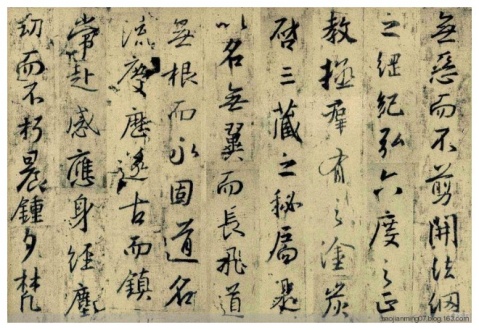 無惡而不剪開法網
之綱紀弘六度之正
教拯羣有之塗炭
啓三藏之秘扃是
以名無翼而長飛道
無根而永固道名
流慶歷遂古而鎮
常赴感應身經塵
劫而不朽晨鍾夕梵
baojianming07.blog.163.com